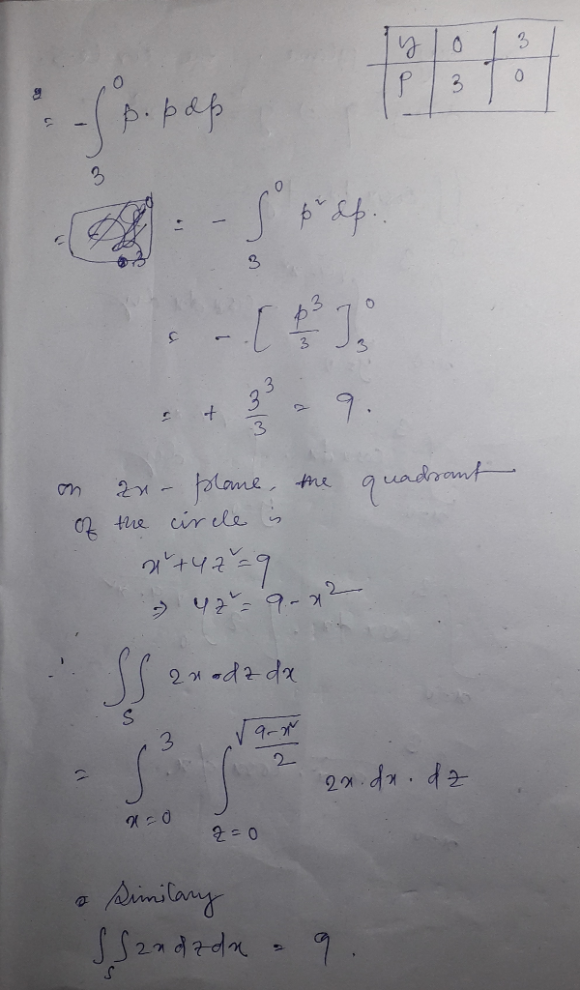 y 0 3
p 3 0
= - ∫₃⁰ p · p dp
= = - ∫₃⁰ p² dp.
= - [ p³/3 ]₃⁰
= + 3³/3 = 9.
on zx - plane, the quadrant
of the circle is
x² + 4z² = 9
⇒ 4z² = 9 - x²
∴ ∬_S 2x · dz dx
= ∫_{x=0}^{3} ∫_{z=0}^{√(9-x²)/2} 2x · dx · dz
Similary
∬_S 2x dz dx = 9.